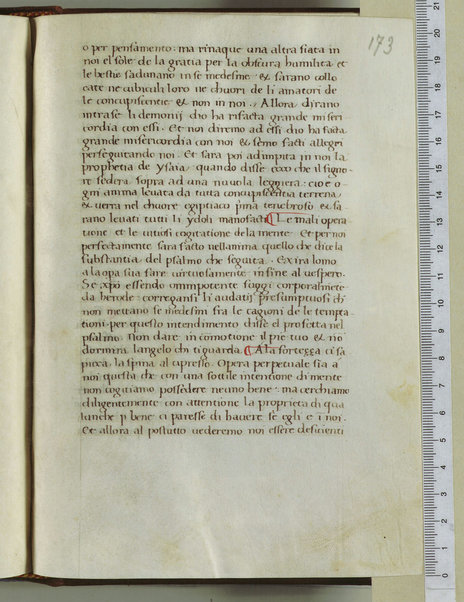 173
o per pensamento: ma rinaque una altra fiata in
noi el sole de la gratia per la obscura humilita et
le bestie sadunano in se medesme. & sarano collo
cate ne cubiculi loro ne chuori de li amatori de
le concupiscentie & non in noi. Allora dirano
intra se li demonij dio ha rifacta grande miseri
cordia con essi. Et noi diremo ad essi dio ha facta
grande misericordia con noi & semo facti allegri
perseguitando noi. Et sara poi adimpita in noi la
prophetia de ysaia, quando disse ecco che il signo
re sedera sopra ad una nuvola leggiera: cioe o
gni anima levata da tutta concupiscentia terrena,
& verra nel chuore egiptiaco prima tenebroso & sa
rano levati tutti li ydoli manofacti Le male opera
tione et le vitiosi cogitatione de la mente. Et per noi
perfectamente sara facto nellanima quello che dice la
substantia del psalmo che seguita. Exira lomo
a la opa sua fare virtuosamente in fine al vespero.
Se xpo essendo omnipotente fuggi corporalmente
da herode: corregansi li audati & presumptuosi di
non mettare se medesimi fra le cagioni de le tempta
tioni. per questo intendimento disse el profetta nel
psalmo. non dare in comotione il pie tuo & no
dormira langelo chi ti guarda. A la fortezza ci sa
picca la spina al cipresso. Opera perpetuale sia a
noi questa che con una sottile intentione di mente
non cogitiamo possedere neuno bene: ma cerchiamo
diligentemente con attentione la proprieta di qua
lunche p bene ci paresse di havere se egli e i noi.
Et allora al postutto vederemo noi essere deficienti